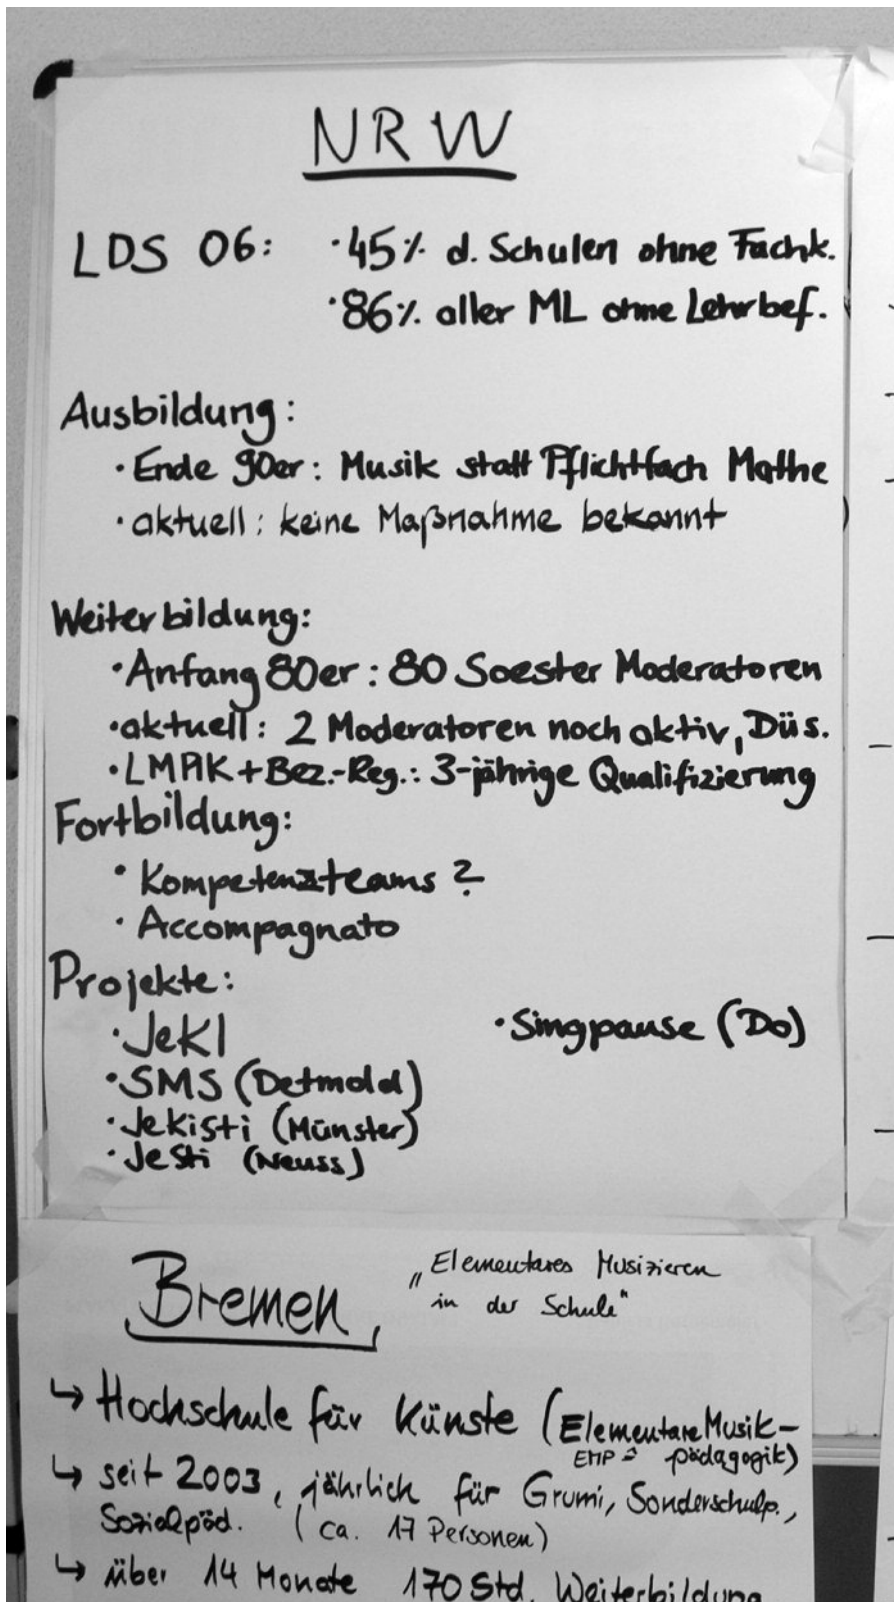 NRW
LDS 06: · 45% d. Schulen ohne Fachk.
· 86% aller ML ohne Lehrbef.
Ausbildung:
· Ende 90er: Musik statt Pflichtfach Mathe
· aktuell: keine Maßnahme bekannt
Weiterbildung:
· Anfang 80er: 80 Soester Moderatoren
· aktuell: 2 Moderatoren noch aktiv, Düs.
· LMAK + Bez.-Reg.: 3-jährige Qualifizierung
Fortbildung:
· Kompetenzteams ?
· Accompagnato
Projekte:
· JeKI · Singpause (Do)
· SMS (Detmold)
· Jekisti (Münster)
· JeSti (Neuss)
Bremen „Elementares Musizieren
in der Schule"
↳ Hochschule für Künste (Elementare Musik-
EMP ≙ pädagogik)
↳ seit 2003, jährlich für Grumi, Sonderschulp.,
Sozialpäd. (ca. 17 Personen)
↳ über 14 Monate 170 Std. Weiterbildung